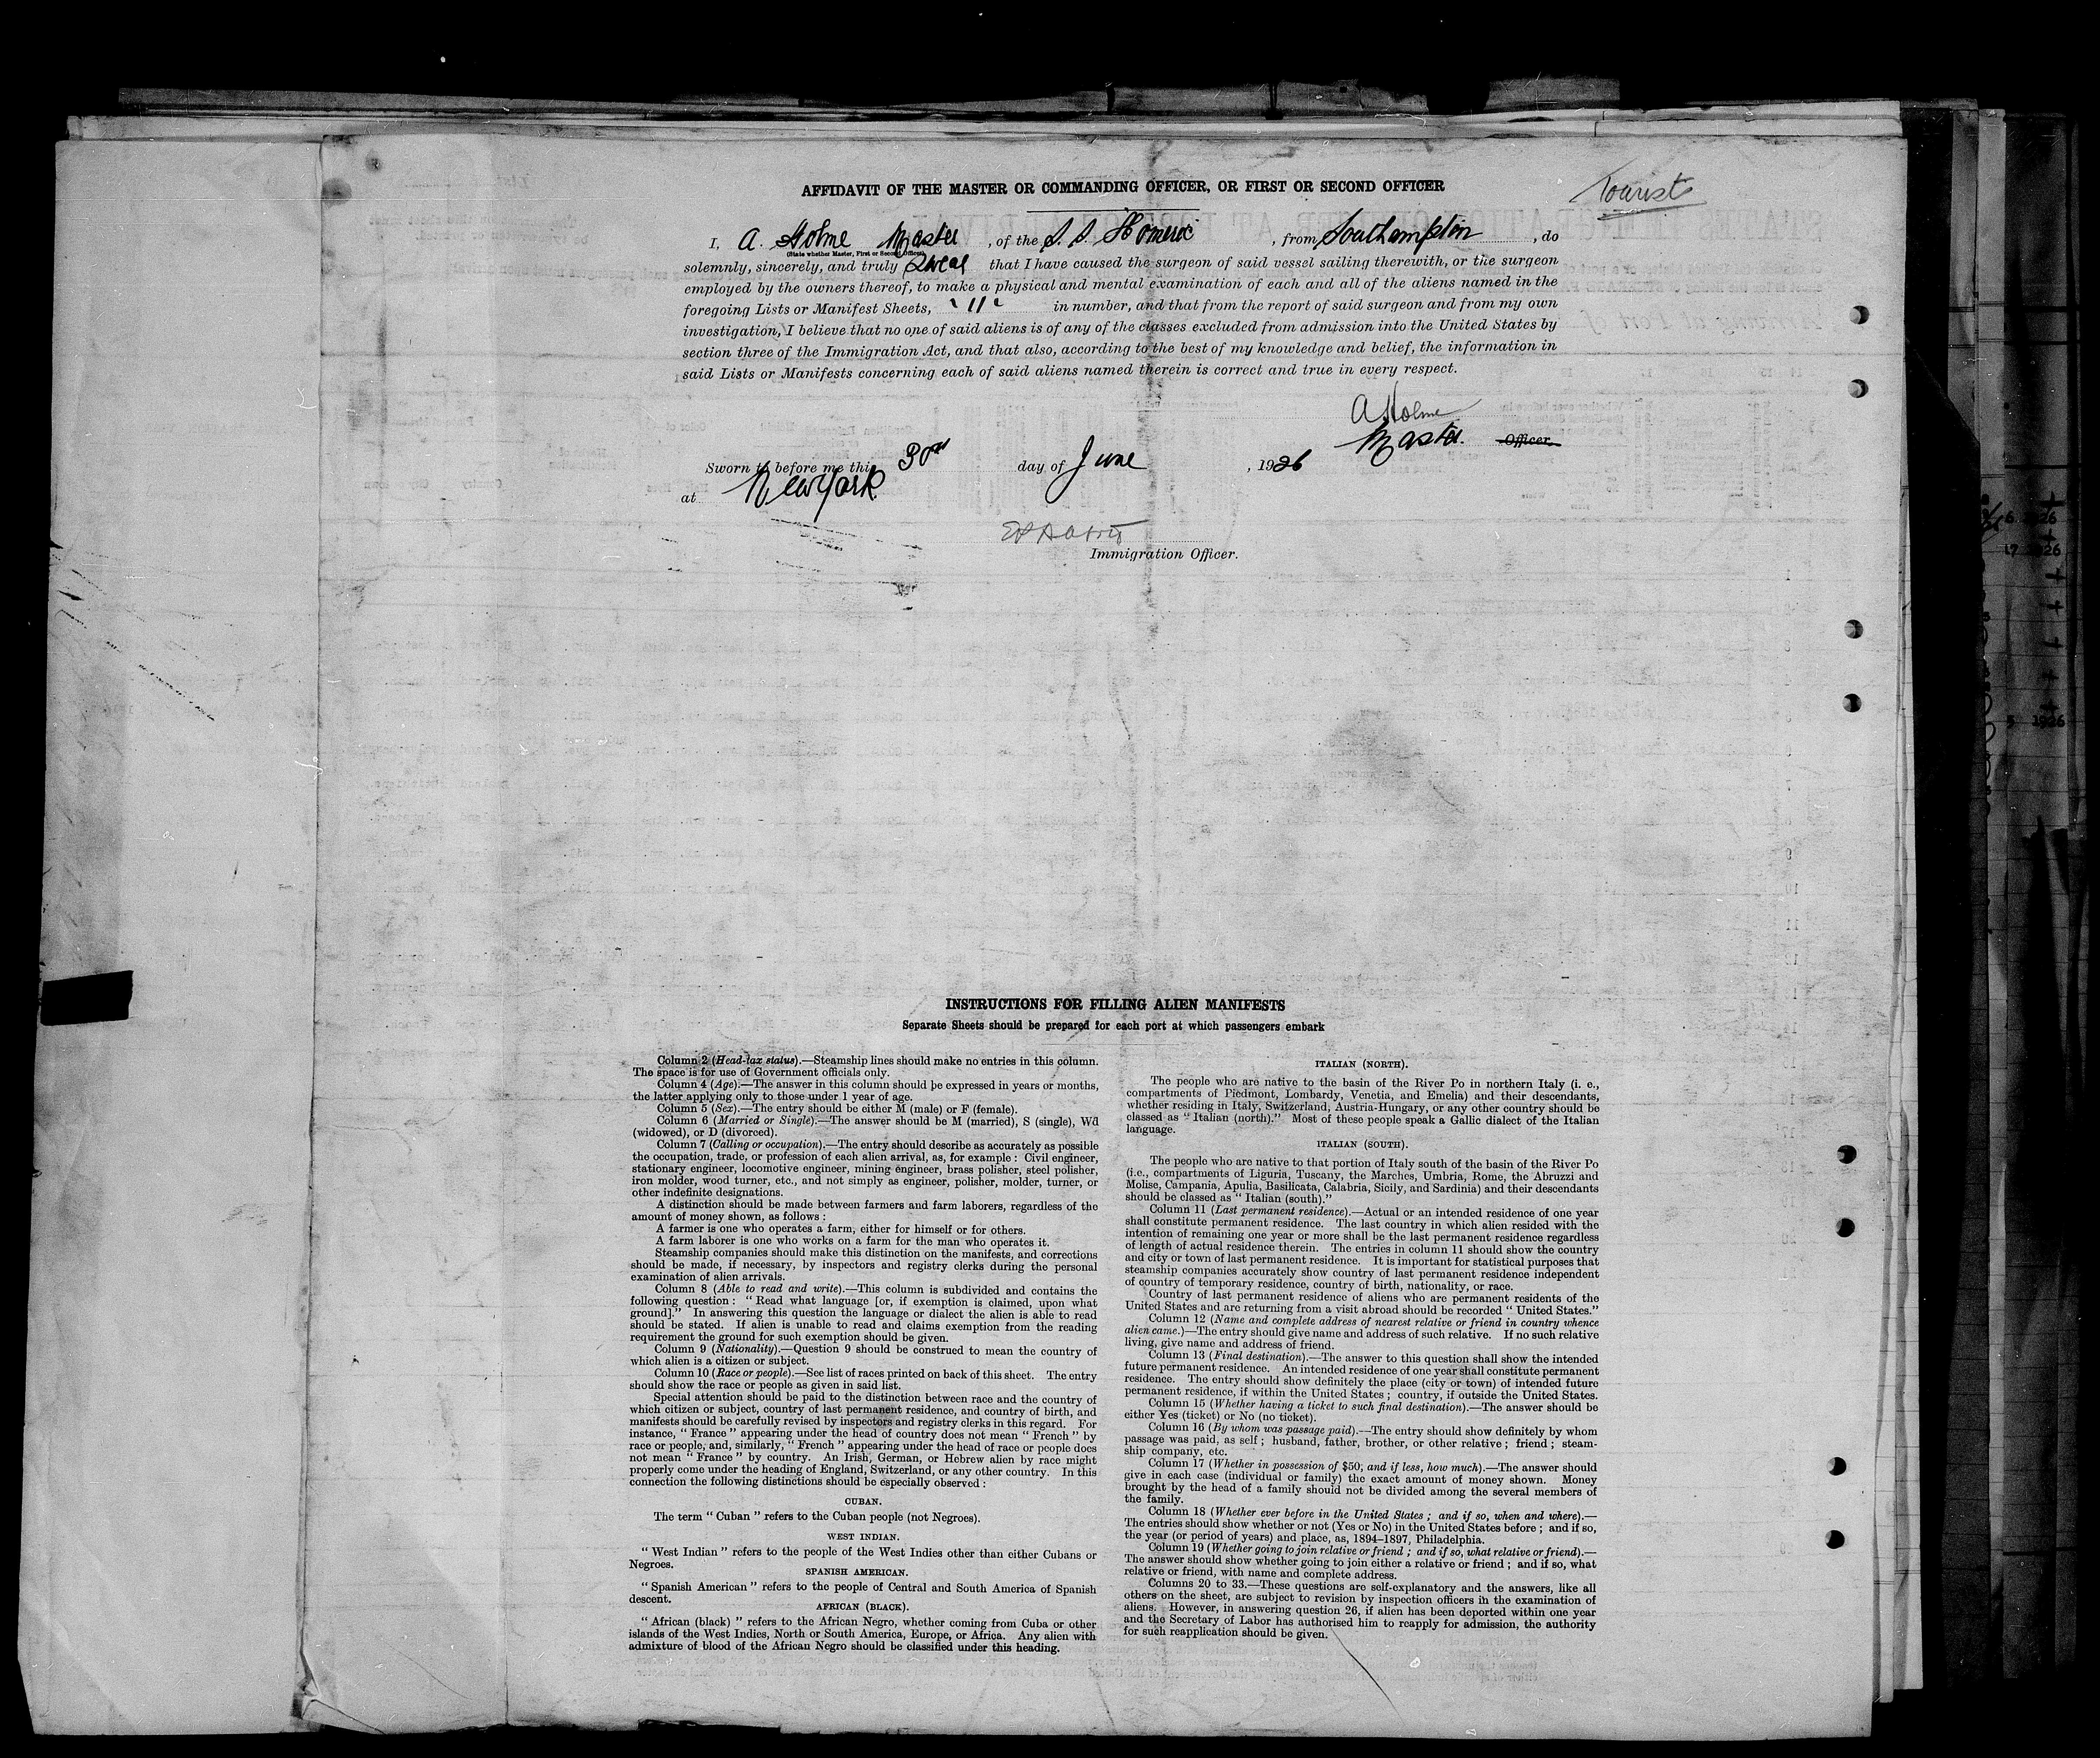 AFFIDAVIT OF THE MASTER OR COMMANDING OFFICER, OR FIRST OR SECOND OFFICER
Tourist
I, A. Holme Master, of the S. S. Homeric, from Southampton, do
(State whether Master, First or Second Officer)
solemnly, sincerely, and truly swear that I have caused the surgeon of said vessel sailing therewith, or the surgeon
employed by the owners thereof, to make a physical and mental examination of each and all of the aliens named in the
foregoing Lists or Manifest Sheets, " 11 " in number, and that from the report of said surgeon and from my own
investigation, I believe that no one of said aliens is of any of the classes excluded from admission into the United States by
section three of the Immigration Act, and that also, according to the best of my knowledge and belief, the information in
said Lists or Manifests concerning each of said aliens named therein is correct and true in every respect.
A Holme
Master. Officer.
Sworn to before me this 30th day of June, 1926
at New York
Immigration Officer.
INSTRUCTIONS FOR FILLING ALIEN MANIFESTS
Separate Sheets should be prepared for each port at which passengers embark
Column 2 (Head-tax status).—Steamship lines should make no entries in this column.
The space is for use of Government officials only.
Column 4 (Age).—The answer in this column should be expressed in years or months,
the latter applying only to those under 1 year of age.
Column 5 (Sex).—The entry should be either M (male) or F (female).
Column 6 (Married or Single).—The answer should be M (married), S (single), Wd
(widowed), or D (divorced).
Column 7 (Calling or occupation).—The entry should describe as accurately as possible
the occupation, trade, or profession of each alien arrival, as, for example : Civil engineer,
stationary engineer, locomotive engineer, mining engineer, brass polisher, steel polisher,
iron molder, wood turner, etc., and not simply as engineer, polisher, molder, turner, or
other indefinite designations.
A distinction should be made between farmers and farm laborers, regardless of the
amount of money shown, as follows :
A farmer is one who operates a farm, either for himself or for others.
A farm laborer is one who works on a farm for the man who operates it.
Steamship companies should make this distinction on the manifests, and corrections
should be made, if necessary, by inspectors and registry clerks during the personal
examination of alien arrivals.
Column 8 (Able to read and write).—This column is subdivided and contains the
following question : " Read what language [or, if exemption is claimed, upon what
ground]." In answering this question the language or dialect the alien is able to read
should be stated. If alien is unable to read and claims exemption from the reading
requirement the ground for such exemption should be given.
Column 9 (Nationality).—Question 9 should be construed to mean the country of
which alien is a citizen or subject.
Column 10 (Race or people).—See list of races printed on back of this sheet. The entry
should show the race or people as given in said list.
Special attention should be paid to the distinction between race and the country of
which citizen or subject, country of last permanent residence, and country of birth, and
manifests should be carefully revised by inspectors and registry clerks in this regard. For
instance, " France " appearing under the head of country does not mean " French " by
race or people, and, similarly, " French " appearing under the head of race or people does
not mean " France " by country. An Irish, German, or Hebrew alien by race might
properly come under the heading of England, Switzerland, or any other country. In this
connection the following distinctions should be especially observed :
CUBAN.
The term " Cuban " refers to the Cuban people (not Negroes).
WEST INDIAN.
" West Indian " refers to the people of the West Indies other than either Cubans or
Negroes.
SPANISH AMERICAN.
" Spanish American " refers to the people of Central and South America of Spanish
descent.
AFRICAN (BLACK).
" African (black) " refers to the African Negro, whether coming from Cuba or other
islands of the West Indies, North or South America, Europe, or Africa. Any alien with
admixture of blood of the African Negro should be classified under this heading.
ITALIAN (NORTH).
The people who are native to the basin of the River Po in northern Italy (i. e.,
compartments of Piedmont, Lombardy, Venetia, and Emelia) and their descendants,
whether residing in Italy, Switzerland, Austria-Hungary, or any other country should be
classed as " Italian (north)." Most of these people speak a Gallic dialect of the Italian
language.
ITALIAN (SOUTH).
The people who are native to that portion of Italy south of the basin of the River Po
(i.e., compartments of Liguria, Tuscany, the Marches, Umbria, Rome, the Abruzzi and
Molise, Campania, Apulia, Basilicata, Calabria, Sicily, and Sardinia) and their descendants
should be classed as " Italian (south)."
Column 11 (Last permanent residence).—Actual or an intended residence of one year
shall constitute permanent residence. The last country in which alien resided with the
intention of remaining one year or more shall be the last permanent residence regardless
of length of actual residence therein. The entries in column 11 should show the country
and city or town of last permanent residence. It is important for statistical purposes that
steamship companies accurately show country of last permanent residence independent
of country of temporary residence, country of birth, nationality, or race.
Country of last permanent residence of aliens who are permanent residents of the
United States and are returning from a visit abroad should be recorded " United States."
Column 12 (Name and complete address of nearest relative or friend in country whence
alien came.)—The entry should give name and address of such relative. If no such relative
living, give name and address of friend.
Column 13 (Final destination).—The answer to this question shall show the intended
future permanent residence. An intended residence of one year shall constitute permanent
residence. The entry should show definitely the place (city or town) of intended future
permanent residence, if within the United States ; country, if outside the United States.
Column 15 (Whether having a ticket to such final destination).—The answer should be
either Yes (ticket) or No (no ticket).
Column 16 (By whom was passage paid).—The entry should show definitely by whom
passage was paid, as self ; husband, father, brother, or other relative ; friend ; steam-
ship company, etc.
Column 17 (Whether in possession of $50, and if less, how much).—The answer should
give in each case (individual or family) the exact amount of money shown. Money
brought by the head of a family should not be divided among the several members of
the family.
Column 18 (Whether ever before in the United States ; and if so, when and where).—
The entries should show whether or not (Yes or No) in the United States before ; and if so,
the year (or period of years) and place, as, 1894–1897, Philadelphia.
Column 19 (Whether going to join relative or friend ; and if so, what relative or friend).—
The answer should show whether going to join either a relative or friend ; and if so, what
relative or friend, with name and complete address.
Columns 20 to 33.—These questions are self-explanatory and the answers, like all
others on the sheet, are subject to revision by inspection officers in the examination of
aliens. However, in answering question 26, if alien has been deported within one year
and the Secretary of Labor has authorised him to reapply for admission, the authority
for such reapplication should be given.